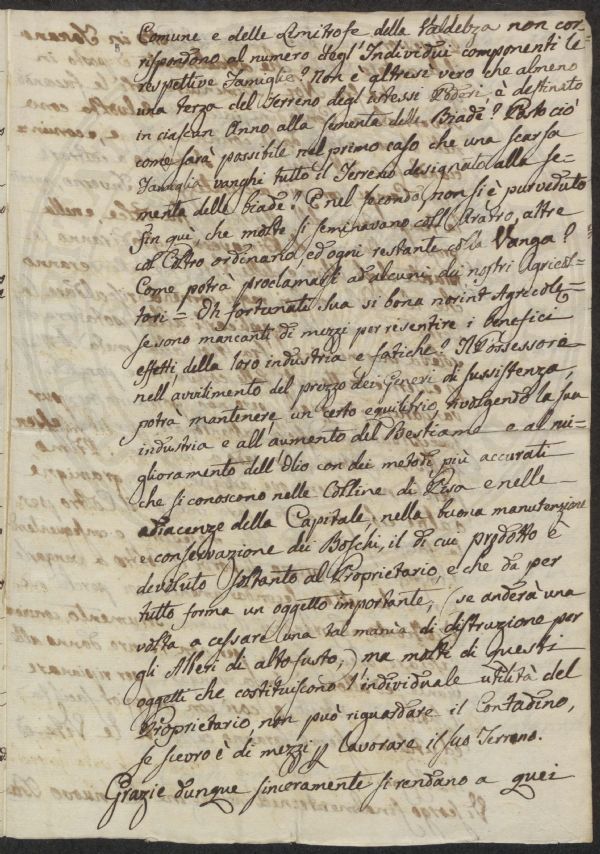 Comune e delle Limitrofe della Valdelza non cor-
rispondono al numero degl'Individui componenti le
respettive Famiglie? Non è altresì vero che almeno
una terza del Terreno degl'istessi Poderi è destinato
in ciascun Anno alla sementa delle Biade? Posto ciò
come sarà possibile nel primo caso che una scarsa
Famiglia vanghi tutto il Terreno designato alla se-
menta delle biade? E nel secondo non si è purveduto
fin qui, che molte si seminavano coll'Aratro, altre
col Coltro ordinario, ed ogni restante colla Vanga?
Come potrà proclamarsi ad alcuni dei nostri Agricol-
tori = Oh fortunati sua si bona norint Agricole =
se sono mancanti di mezzi per risentire i benefici
effetti della loro industria e fatiche? Il Possessore
nell'avvilimento del prezzo dei Generi di sussistenza,
potrà mantenere un certo equilibrio, rivolgendo la sua
industria e all'aumento del Bestiame e al mi-
glioramento dell'Olio con dei metodi più accurati
che si conoscono nelle Colline di Pisa e nelle
adiacenze della Capitale, nella buona manutenzione
e conservazione dei Boschi, il di cui prodotto è
devoluto soltanto al Proprietario, e che da per
tutto forma un oggetto importante, (se anderà una
volta a cessare una tal mania di distruzione per
gli Alberi di alto fusto,) ma molti di questi
oggetti che costituiscono l'individuale utilità del
Proprietario non può riguardare il Contadino,
se sievro è di mezzi p lavorare il suo Terreno.
Grazie dunque sinceramente si rendano a quei